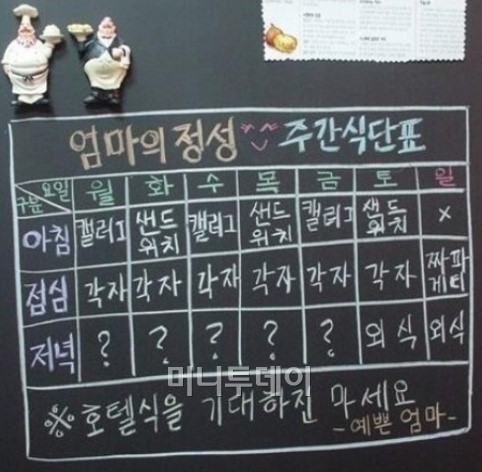 엄마의 정성 ^^ 주간식단표
구분 요일 월 화 수 목 금 토 일
아침 캘러그 샌드위치 캘러그 샌드위치 캘러그 샌드위치 x
점심 각자 각자 각자 각자 각자 각자 짜파게티
저녁 ? ? ? ? ? 외식 외식
머니투데이
※ 호텔식을 기대하진 마세요
-예쁜 엄마-